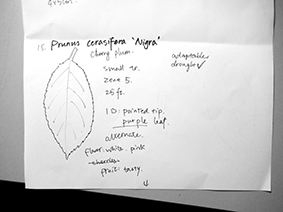 18. Prunus cerasifera 'Nigra'
Cherry plum.
adaptable
drought
small tr.
zone 5.
25 ft.
ID: pointed tip.
purple leaf.
alternate.
flower: white. pink
fruit: tasty.
4